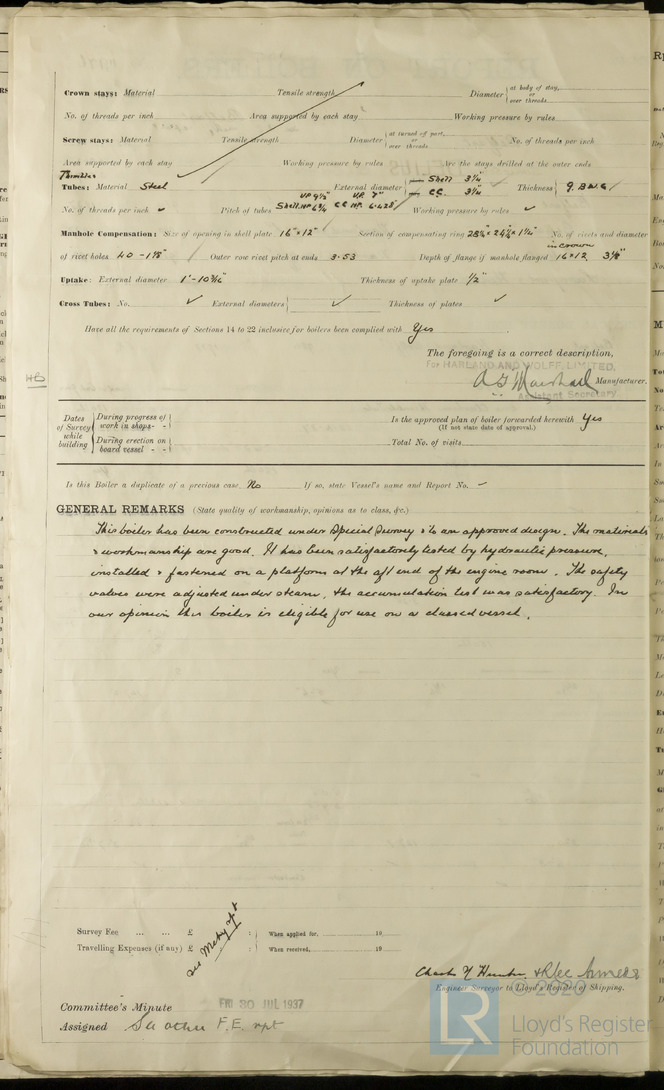 Crown stays: Material Tensile strength Diameter at body of stay, or over threads
No. of threads per inch Area supported by each stay Working pressure by rules
Screw stays: Material Tensile strength Diameter at turned off part, or over threads No. of threads per inch
Area supported by each stay Working pressure by rules Are the stays drilled at the outer ends
Thimble
Tubes: Material Steel External diameter Shell 3¼" CC 3¼" Thickness 9 B.W.G.
No. of threads per inch Pitch of tubes Working pressure by rules
Manhole Compensation: Size of opening in shell plate 16" × 12" Section of compensating ring No. of rivets and diameter
of rivet holes 40 - 1⅛" Outer row rivet pitch at ends 3.53 Depth of flange if manhole flanged in crown 16×12 3⅛"
Uptake: External diameter Thickness of uptake plate ½"
Cross Tubes: No. External diameters Thickness of plates
Have all the requirements of Sections 14 to 22 inclusive for boilers been complied with Yes
The foregoing is a correct description,
For HARLAND AND WOLFF, LIMITED,
Manufacturer.
Assistant Secretary
Dates of Survey while building During progress of work in shops - - During erection on board vessel - -
Is the approved plan of boiler forwarded herewith Yes
(If not state date of approval.)
Total No. of visits
Is this Boiler a duplicate of a previous case No If so, state Vessel's name and Report No. -
GENERAL REMARKS (State quality of workmanship, opinions as to class, &c.)
This boiler has been constructed under Special Survey & to an approved design. The materials
& workmanship are good. It has been satisfactorily tested by hydraulic pressure,
installed & fastened on a platform at the aft end of the engine room. The safety
valves were adjusted under steam, the accumulation test was satisfactory. In
our opinion this boiler is eligible for use on a classed vessel.
Survey Fee ... ... £ : : When applied for, 19
Travelling Expenses (if any) £ : : When received, 19
see Mchy rpt
Engineer Surveyor to Lloyd's Register of Shipping.
© 2020
Committee's Minute FRI 30 JUL 1937
Assigned See other F.E. rpt
LR
Lloyd's Register
Foundation